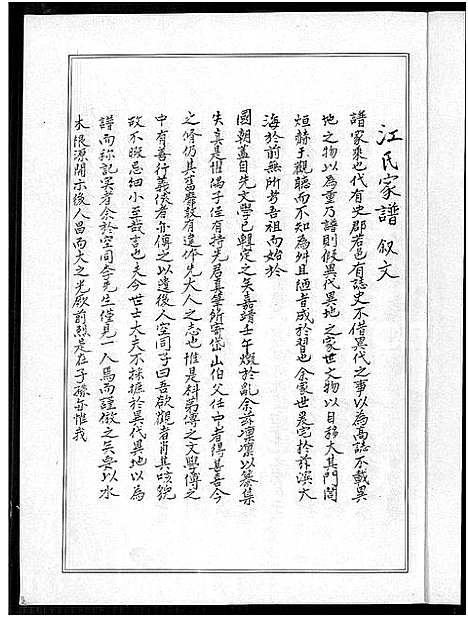 江氏家譜 叙文
譜家乘也代有史郡若邑有誌史不借異代之事以為高誌不載異
地之物以為重乃譜則假異代異地之家世文物以自移大其門閭
烜赫于觀聽而不知為舛且陋者成於習也余家世定於
海於前無所考吾祖而始於
國朝蓋自先文學已輯定之矣嘉靖壬午燬於亂余茲凜凜以纂集
失真是惟偏子侄有持先君真筆所寄岱山伯父任中者得甚喜今
之修仍其舊靡敢有違先大人之志也惟是科第傳之文學傳之
中有善行義俠者亦傳之以遺後人空同子曰吾欲觀者肖其咳貌
故不暇忌細小至哉言也夫今世士大夫不摭於異代異地以為
譜而称記실者余於空同李先生僅見一人焉而謹傚之矣要以水
木根源開示後人昌而大之光厥前烈是在子孫亦惟我